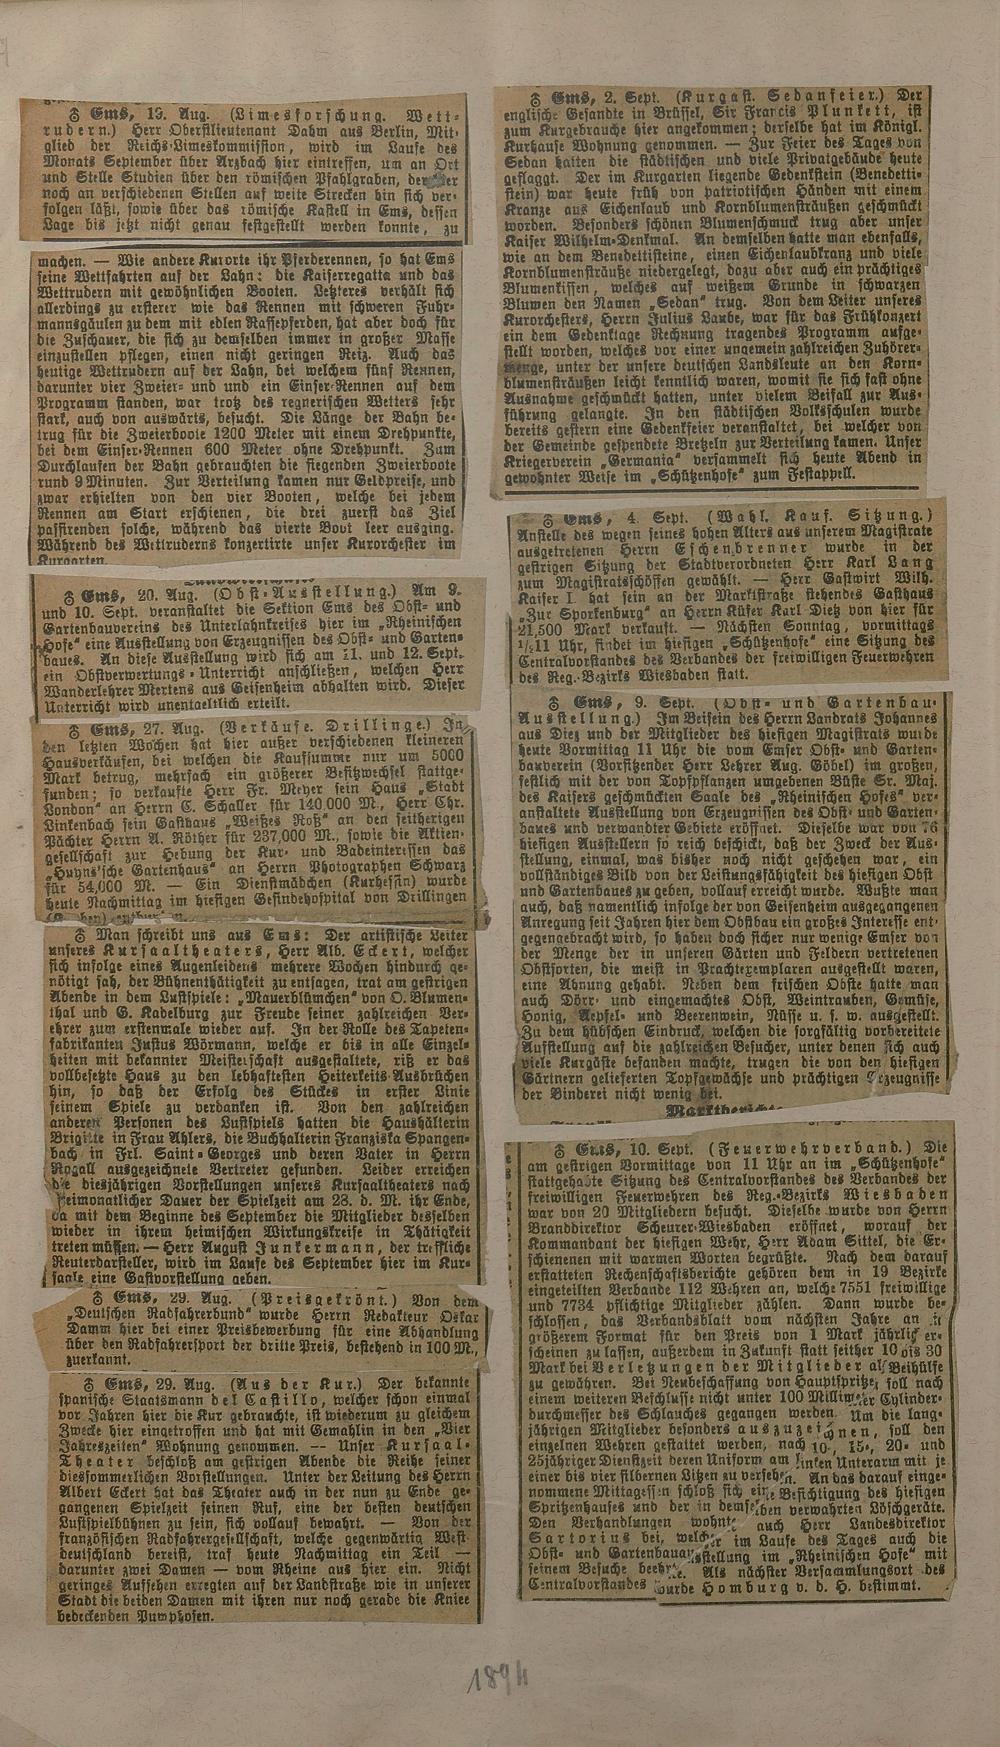 ♁ Ems, 19. Aug. (Limesforschung. Wett-
rudern.) Herr Oberstlieutenant Dahm aus Berlin, Mit-
glied der Reichs-Limeskommission, wird im Laufe des
Monats September über Arzbach hier eintreffen, um an Ort
und Stelle Studien über den römischen Pfahlgraben, der hier
noch an verschiedenen Stellen auf weite Strecken hin sich ver-
folgen läßt, sowie über das römische Kastell in Ems, dessen
Lage bis jetzt nicht genau festgestellt werden konnte, zu
machen. — Wie andere Kurorte ihr Pferderennen, so hat Ems
seine Wettfahrten auf der Lahn: die Kaiserregatta und das
Wettrudern mit gewöhnlichen Booten. Letzteres verhält sich
allerdings zu ersterer wie das Rennen mit schweren Fuhr-
mannsgäulen zu dem mit edlen Rassepferden, hat aber doch für
die Zuschauer, die sich zu demselben immer in großer Masse
einzustellen pflegen, einen nicht geringen Reiz. Auch das
heutige Wettrudern auf der Lahn, bei welchem fünf Rennen,
darunter vier Zweier- und und ein Einser-Rennen auf dem
Programm standen, war trotz des regnerischen Wetters sehr
stark, auch von auswärts, besucht. Die Länge der Bahn be-
trug für die Zweierboote 1200 Meter mit einem Drehpunkte,
bei dem Einser-Rennen 600 Meter ohne Drehpunkt. Zum
Durchlaufen der Bahn gebrauchten die siegenden Zweierboote
rund 9 Minuten. Zur Verteilung kamen nur Geldpreise, und
zwar erhielten von den vier Booten, welche bei jedem
Rennen am Start erschienen, die drei zuerst das Ziel
passirenden solche, während das vierte Boot leer ausging.
Während des Wettruderns konzertirte unser Kurorchester im
Kurgarten.
♁ Ems, 20. Aug. (Obst-Ausstellung.) Am 9.
und 10. Sept. veranstaltet die Sektion Ems des Obst- und
Gartenbauvereins des Unterlahnkreises hier im „Rheinischen
Hofe“ eine Ausstellung von Erzeugnissen des Obst- und Garten-
baues. An diese Ausstellung wird sich am 11. und 12. Sept.
ein Obstverwertungs-Unterricht anschließen, welchen Herr
Wanderlehrer Mertens aus Geisenheim abhalten wird. Dieser
Unterricht wird unentgeltlich erteilt.
♁ Ems, 27. Aug. (Verkäufe. Drillinge.) In
den letzten Wochen hat hier außer verschiedenen kleineren
Hausverkäufen, bei welchen die Kaufsumme nur um 5000
Mark betrug, mehrfach ein größerer Besitzwechsel stattge-
funden; so verkaufte Herr Fr. Meyer sein Haus „Stadt
London“ an Herrn C. Schaller für 140,000 M., Herr Chr.
Linkenbach sein Gasthaus „Weißes Roß“ an den seitherigen
Pächter Herrn A. Röther für 237,000 M., sowie die Aktien-
gesellschaft zur Hebung der Kur- und Badeinteressen das
„Huyns'sche Gartenhaus“ an Herrn Photographen Schwarz
für 54,000 M. — Ein Dienstmädchen (Kurhessin) wurde
heute Nachmittag im hiesigen Gesindehospital von Drillingen
♁ Man schreibt uns aus Ems: Der artistische Leiter
unseres Kursaaltheaters, Herr Alb. Eckert, welcher
sich infolge eines Augenleidens mehrere Wochen hindurch ge-
nötigt sah, der Bühnenthätigkeit zu entsagen, trat am gestrigen
Abende in dem Lustspiele: „Mauerblümchen“ von O. Blumen-
thal und G. Kadelburg zur Freude seiner zahlreichen Ver-
ehrer zum erstenmale wieder auf. In der Rolle des Tapeten-
fabrikanten Justus Wörmann, welche er bis in alle Einzel-
heiten mit bekannter Meisterschaft ausgestaltete, riß er das
vollbesetzte Haus zu den lebhaftesten Heiterkeits-Ausbrüchen
hin, so daß der Erfolg des Stückes in erster Linie
seinem Spiele zu verdanken ist. Von den zahlreichen
anderen Personen des Lustspiels hatten die Haushälterin
Brigitte in Frau Ahlers, die Buchhalterin Franziska Spangen-
bach in Frl. Saint-Georges und deren Vater in Herrn
Rogall ausgezeichnete Vertreter gefunden. Leider erreichen
die diesjährigen Vorstellungen unseres Kursaaltheaters nach
zweimonatlicher Dauer der Spielzeit am 28. d. M. ihr Ende,
da mit dem Beginne des September die Mitglieder desselben
wieder in ihrem heimischen Wirkungskreise in Thätigkeit
treten müssen. — Herr August Junkermann, der treffliche
Reuterdarsteller, wird im Laufe des September hier im Kur-
saale eine Gastvorstellung geben.
♁ Ems, 29. Aug. (Preisgekrönt.) Von dem
„Deutschen Radfahrerbund“ wurde Herrn Redakteur Oskar
Damm hier bei einer Preisbewerbung für eine Abhandlung
über den Radfahrersport der dritte Preis, bestehend in 100 M.,
zuerkannt.
♁ Ems, 29. Aug. (Aus der Kur.) Der bekannte
spanische Staatsmann del Castillo, welcher schon einmal
vor Jahren hier die Kur gebrauchte, ist wiederum zu gleichem
Zwecke hier eingetroffen und hat mit Gemahlin in den „Vier
Jahreszeiten“ Wohnung genommen. — Unser Kursaal-
Theater beschloß am gestrigen Abende die Reihe seiner
diessommerlichen Vorstellungen. Unter der Leitung des Herrn
Albert Eckert hat das Theater auch in der nun zu Ende ge-
gangenen Spielzeit seinen Ruf, eine der besten deutschen
Lustspielbühnen zu sein, sich vollauf bewahrt. — Von der
französischen Radfahrergesellschaft, welche gegenwärtig West-
deutschland bereist, traf heute Nachmittag ein Teil —
darunter zwei Damen — vom Rheine aus hier ein. Nicht
geringes Aufsehen erregten auf der Landstraße wie in unserer
Stadt die beiden Damen mit ihren nur noch gerade die Kniee
bedeckenden Pumphosen.
♁ Ems, 2. Sept. (Kurgast. Sedanfeier.) Der
englische Gesandte in Brüssel, Sir Francis Plunkett, ist
zum Kurgebrauche hier angekommen; derselbe hat im Königl.
Kurhause Wohnung genommen. — Zur Feier des Tages von
Sedan hatten die städtischen und viele Privatgebäude heute
geflaggt. Der im Kurgarten liegende Gedenkstein (Benedetti-
stein) war heute früh von patriotischen Händen mit einem
Kranze aus Eichenlaub und Kornblumensträußen geschmückt
worden. Besonders schönen Blumenschmuck trug aber unser
Kaiser Wilhelm-Denkmal. An demselben hatte man ebenfalls,
wie an dem Benedettisteine, einen Eichenlaubkranz und viele
Kornblumensträuße niedergelegt, dazu aber auch ein prächtiges
Blumenkissen, welches auf weißem Grunde in schwarzen
Blumen den Namen „Sedan“ trug. Von dem Leiter unseres
Kurorchesters, Herrn Julius Laube, war für das Frühkonzert
ein dem Gedenktage Rechnung tragendes Programm aufge-
stellt worden, welches vor einer ungemein zahlreichen Zuhörer-
menge, unter der unsere deutschen Landsleute an den Korn-
blumensträußen leicht kenntlich waren, womit sie sich fast ohne
Ausnahme geschmückt hatten, unter vielem Beifall zur Aus-
führung gelangte. In den städtischen Volksschulen wurde
bereits gestern eine Gedenkfeier veranstaltet, bei welcher von
der Gemeinde gespendete Bretzeln zur Verteilung kamen. Unser
Kriegerverein „Germania“ versammelt sich heute Abend in
gewohnter Weise im „Schützenhofe“ zum Festappell.
♁ Ems, 4. Sept. (Wahl. Kauf. Sitzung.)
Anstelle des wegen seines hohen Alters aus unserem Magistrate
ausgetretenen Herrn Eschenbrenner wurde in der
gestrigen Sitzung der Stadtverordneten Herr Karl Lang
zum Magistratsschöffen gewählt. — Herr Gastwirt Wilh.
Kaiser I. hat sein an der Marktstraße stehendes Gasthaus
„Zur Sporkenburg“ an Herrn Küfer Karl Dietz von hier für
21,500 Mark verkauft. — Nächsten Sonntag, vormittags
½11 Uhr, findet im hiesigen „Schützenhofe“ eine Sitzung des
Centralvorstandes des Verbandes der freiwilligen Feuerwehren
des Reg.-Bezirks Wiesbaden statt.
♁ Ems, 9. Sept. (Obst- und Gartenbau-
Ausstellung.) Im Beisein des Herrn Landrats Johannes
aus Diez und der Mitglieder des hiesigen Magistrats wurde
heute Vormittag 11 Uhr die vom Emser Obst- und Garten-
bauverein (Vorsitzender Herr Lehrer Aug. Göbel) im großen,
festlich mit der von Topfpflanzen umgebenen Büste Sr. Maj.
des Kaisers geschmückten Saale des „Rheinischen Hofes“ ver-
anstaltete Ausstellung von Erzeugnissen des Obst- und Garten-
baues und verwandter Gebiete eröffnet. Dieselbe war von 76
hiesigen Ausstellern so reich beschickt, daß der Zweck der Aus-
stellung, einmal, was bisher noch nicht geschehen war, ein
vollständiges Bild von der Leistungsfähigkeit des hiesigen Obst
und Gartenbaues zu geben, vollauf erreicht wurde. Wußte man
auch, daß namentlich infolge der von Geisenheim ausgegangenen
Anregung seit Jahren hier dem Obstbau ein großes Interesse ent-
gegengebracht wird, so haben doch sicher nur wenige Emser von
der Menge der in unseren Gärten und Feldern vertretenen
Obstsorten, die meist in Prachtexemplaren ausgestellt waren,
eine Ahnung gehabt. Neben dem frischen Obste hatte man
auch Dörr- und eingemachtes Obst, Weintrauben, Gemüse,
Honig, Aepfel- und Beerenwein, Nüsse u. s. w. ausgestellt.
Zu dem hübschen Eindruck, welchen die sorgfältig vorbereitete
Aufstellung auf die zahlreichen Besucher, unter denen sich auch
viele Kurgäste befanden machte, trugen die von den hiesigen
Gärtnern gelieferten Topfgewächse und prächtigen Erzeugnisse
der Binderei nicht wenig bei.
Marktberichte
♁ Ems, 10. Sept. (Feuerwehrverband.) Die
am gestrigen Vormittage von 11 Uhr an im „Schützenhofe“
stattgehabte Sitzung des Centralvorstandes des Verbandes der
freiwilligen Feuerwehren des Reg.-Bezirks Wiesbaden
war von 20 Mitgliedern besucht. Dieselbe wurde von Herrn
Branddirektor Scheurer-Wiesbaden eröffnet, worauf der
Kommandant der hiesigen Wehr, Herr Adam Sittel, die Er-
schienenen mit warmen Worten begrüßte. Nach dem darauf
erstatteten Rechenschaftsberichte gehören dem in 19 Bezirke
eingeteilten Verbande 112 Wehren an, welche 7551 freiwillige
und 7734 pflichtige Mitglieder zählen. Dann wurde be-
schlossen, das Verbandsblatt vom nächsten Jahre an in
größerem Format für den Preis von 1 Mark jährlich er-
scheinen zu lassen, außerdem in Zukunft statt seither 10 bis 30
Mark bei Verletzungen der Mitglieder als Beihülfe
zu gewähren. Bei Neubeschaffung von Hauptspritzen soll nach
einem weiteren Beschlusse nicht unter 100 Millimeter Cylinder-
durchmesser des Schlauches gegangen werden. Um die lang-
jährigen Mitglieder besonders auszuzeichnen, soll den
einzelnen Wehren gestattet werden, nach 10-, 15-, 20- und
25jähriger Dienstzeit deren Uniform am linken Unterarm mit je
einer bis vier silbernen Litzen zu versehen. An das darauf einge-
nommene Mittagessen schloß sich eine Besichtigung des hiesigen
Spritzenhauses und der in demselben verwahrten Löschgeräte.
Den Verhandlungen wohnte auch Herr Landesdirektor
Sartorius bei, welcher im Laufe des Tages auch die
Obst- und Gartenbauausstellung im „Rheinischen Hofe“ mit
seinem Besuche beehrte. Als nächster Versammlungsort des
Centralvorstandes wurde Homburg v. d. H. bestimmt.
1894